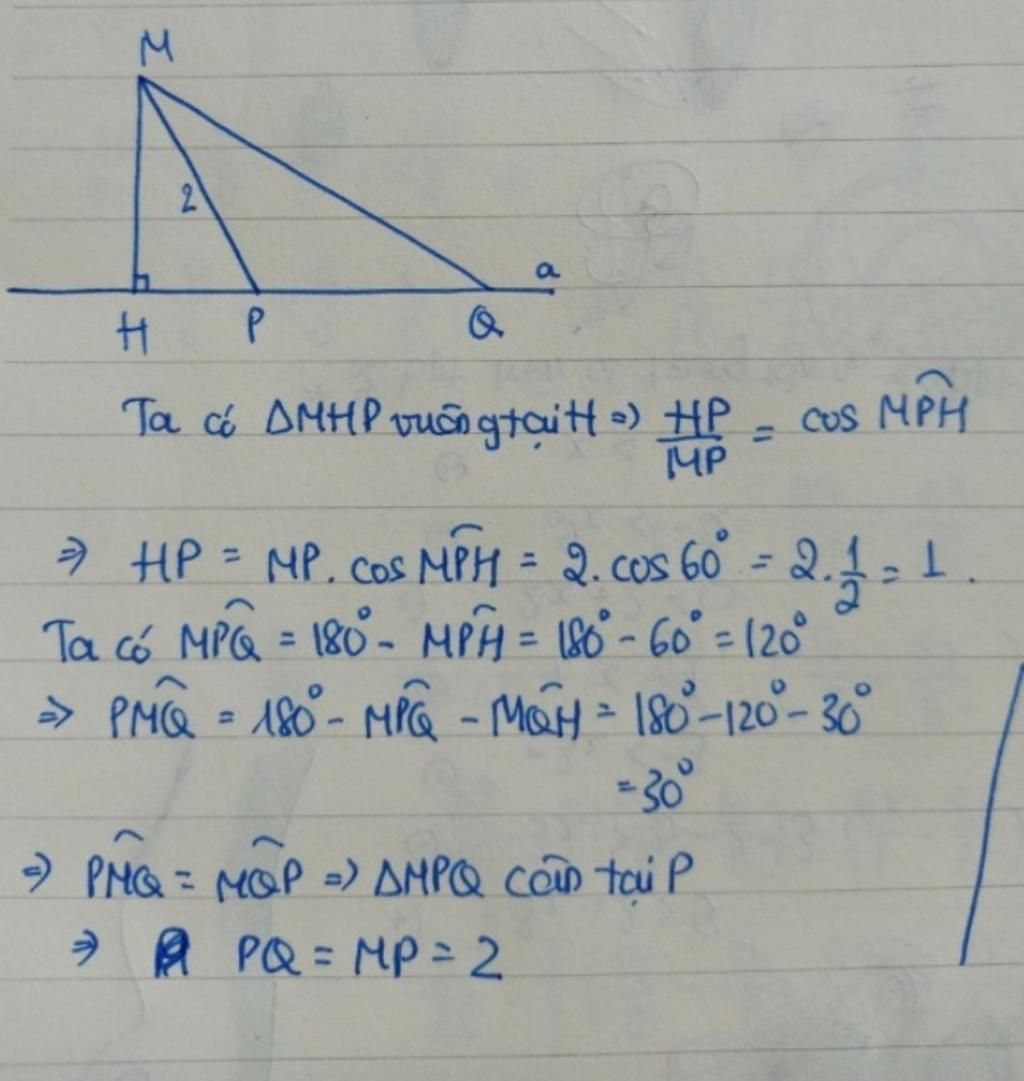 M
2
a
H P Q
Ta có ΔMHP vuông tại H => HP/MP = cos MP̂H
=> HP = MP. cos MP̂H = 2. cos 60° = 2. 1/2 = 1.
Ta có MP̂Q = 180° - MP̂H = 180° - 60° = 120°
=> PM̂Q = 180° - MP̂Q - MQ̂H = 180° - 120° - 30°
= 30°
=> PM̂Q = MQ̂P => ΔMPQ cân tại P
=> PQ = MP = 2